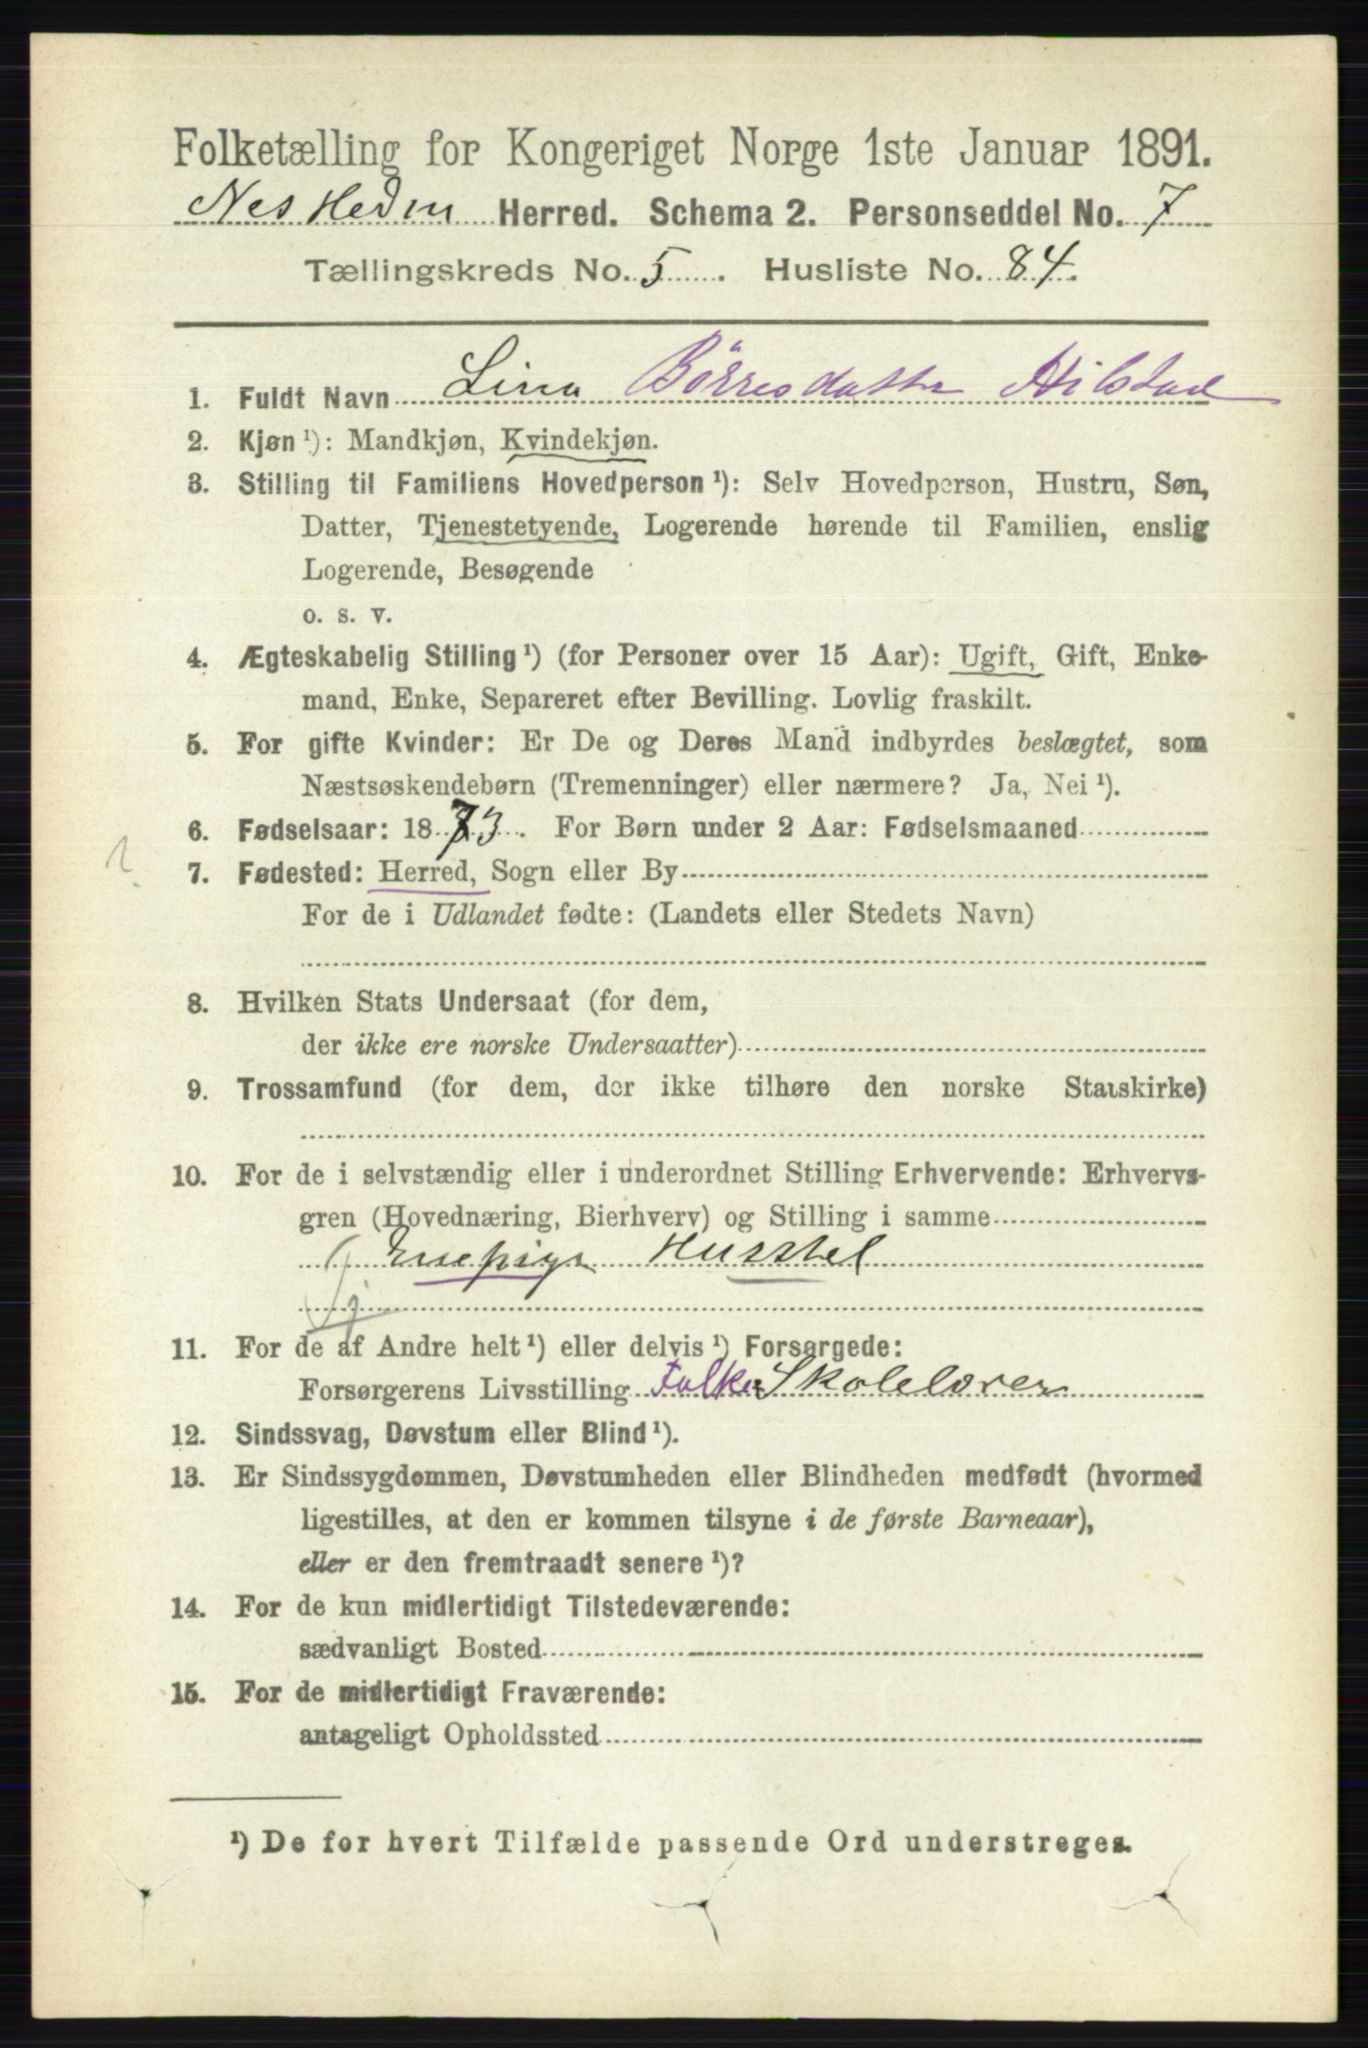 Folketælling for Kongeriget Norge 1ste Januar 1891.
Nes Hedm Herred. Schema 2. Personseddel No. 7
Tællingskreds No. 5. Husliste No. 84.
1. Fuldt Navn Lina Börresdatter Hilstad
2. Kjøn ¹): Mandkjøn, Kvindekjøn.
3. Stilling til Familiens Hovedperson ¹): Selv Hovedperson, Hustru, Søn,
Datter, Tjenestetyende, Logerende hørende til Familien, enslig
Logerende, Besøgende
o. s. v.
4. Ægteskabelig Stilling ¹) (for Personer over 15 Aar): Ugift, Gift, Enke-
mand, Enke, Separeret efter Bevilling. Lovlig fraskilt.
5. For gifte Kvinder: Er De og Deres Mand indbyrdes beslægtet, som
Næstsøskendebørn (Tremenninger) eller nærmere? Ja, Nei ¹).
6. Fødselsaar: 1873. For Børn under 2 Aar: Fødselsmaaned
7. Fødested: Herred, Sogn eller By
For de i Udlandet fødte: (Landets eller Stedets Navn)
8. Hvilken Stats Undersaat (for dem,
der ikke ere norske Undersaatter)
9. Trossamfund (for dem, der ikke tilhøre den norske Statskirke)
10. For de i selvstændig eller i underordnet Stilling Erhvervende: Erhvervs-
gren (Hovednæring, Bierhverv) og Stilling i samme
Enepige Husstel
Tj
11. For de af Andre helt ¹) eller delvis ¹) Forsørgede:
Forsørgerens Livsstilling Folke Skolelærer
12. Sindssvag, Døvstum eller Blind ¹).
13. Er Sindssygdommen, Døvstumheden eller Blindheden medfødt (hvormed
ligestilles, at den er kommen tilsyne i de første Barneaar),
eller er den fremtraadt senere ¹)?
14. For de kun midlertidigt Tilstedeværende:
sædvanligt Bosted
15. For de midlertidigt Fraværende:
antageligt Opholdssted
¹) De for hvert Tilfælde passende Ord understreges.